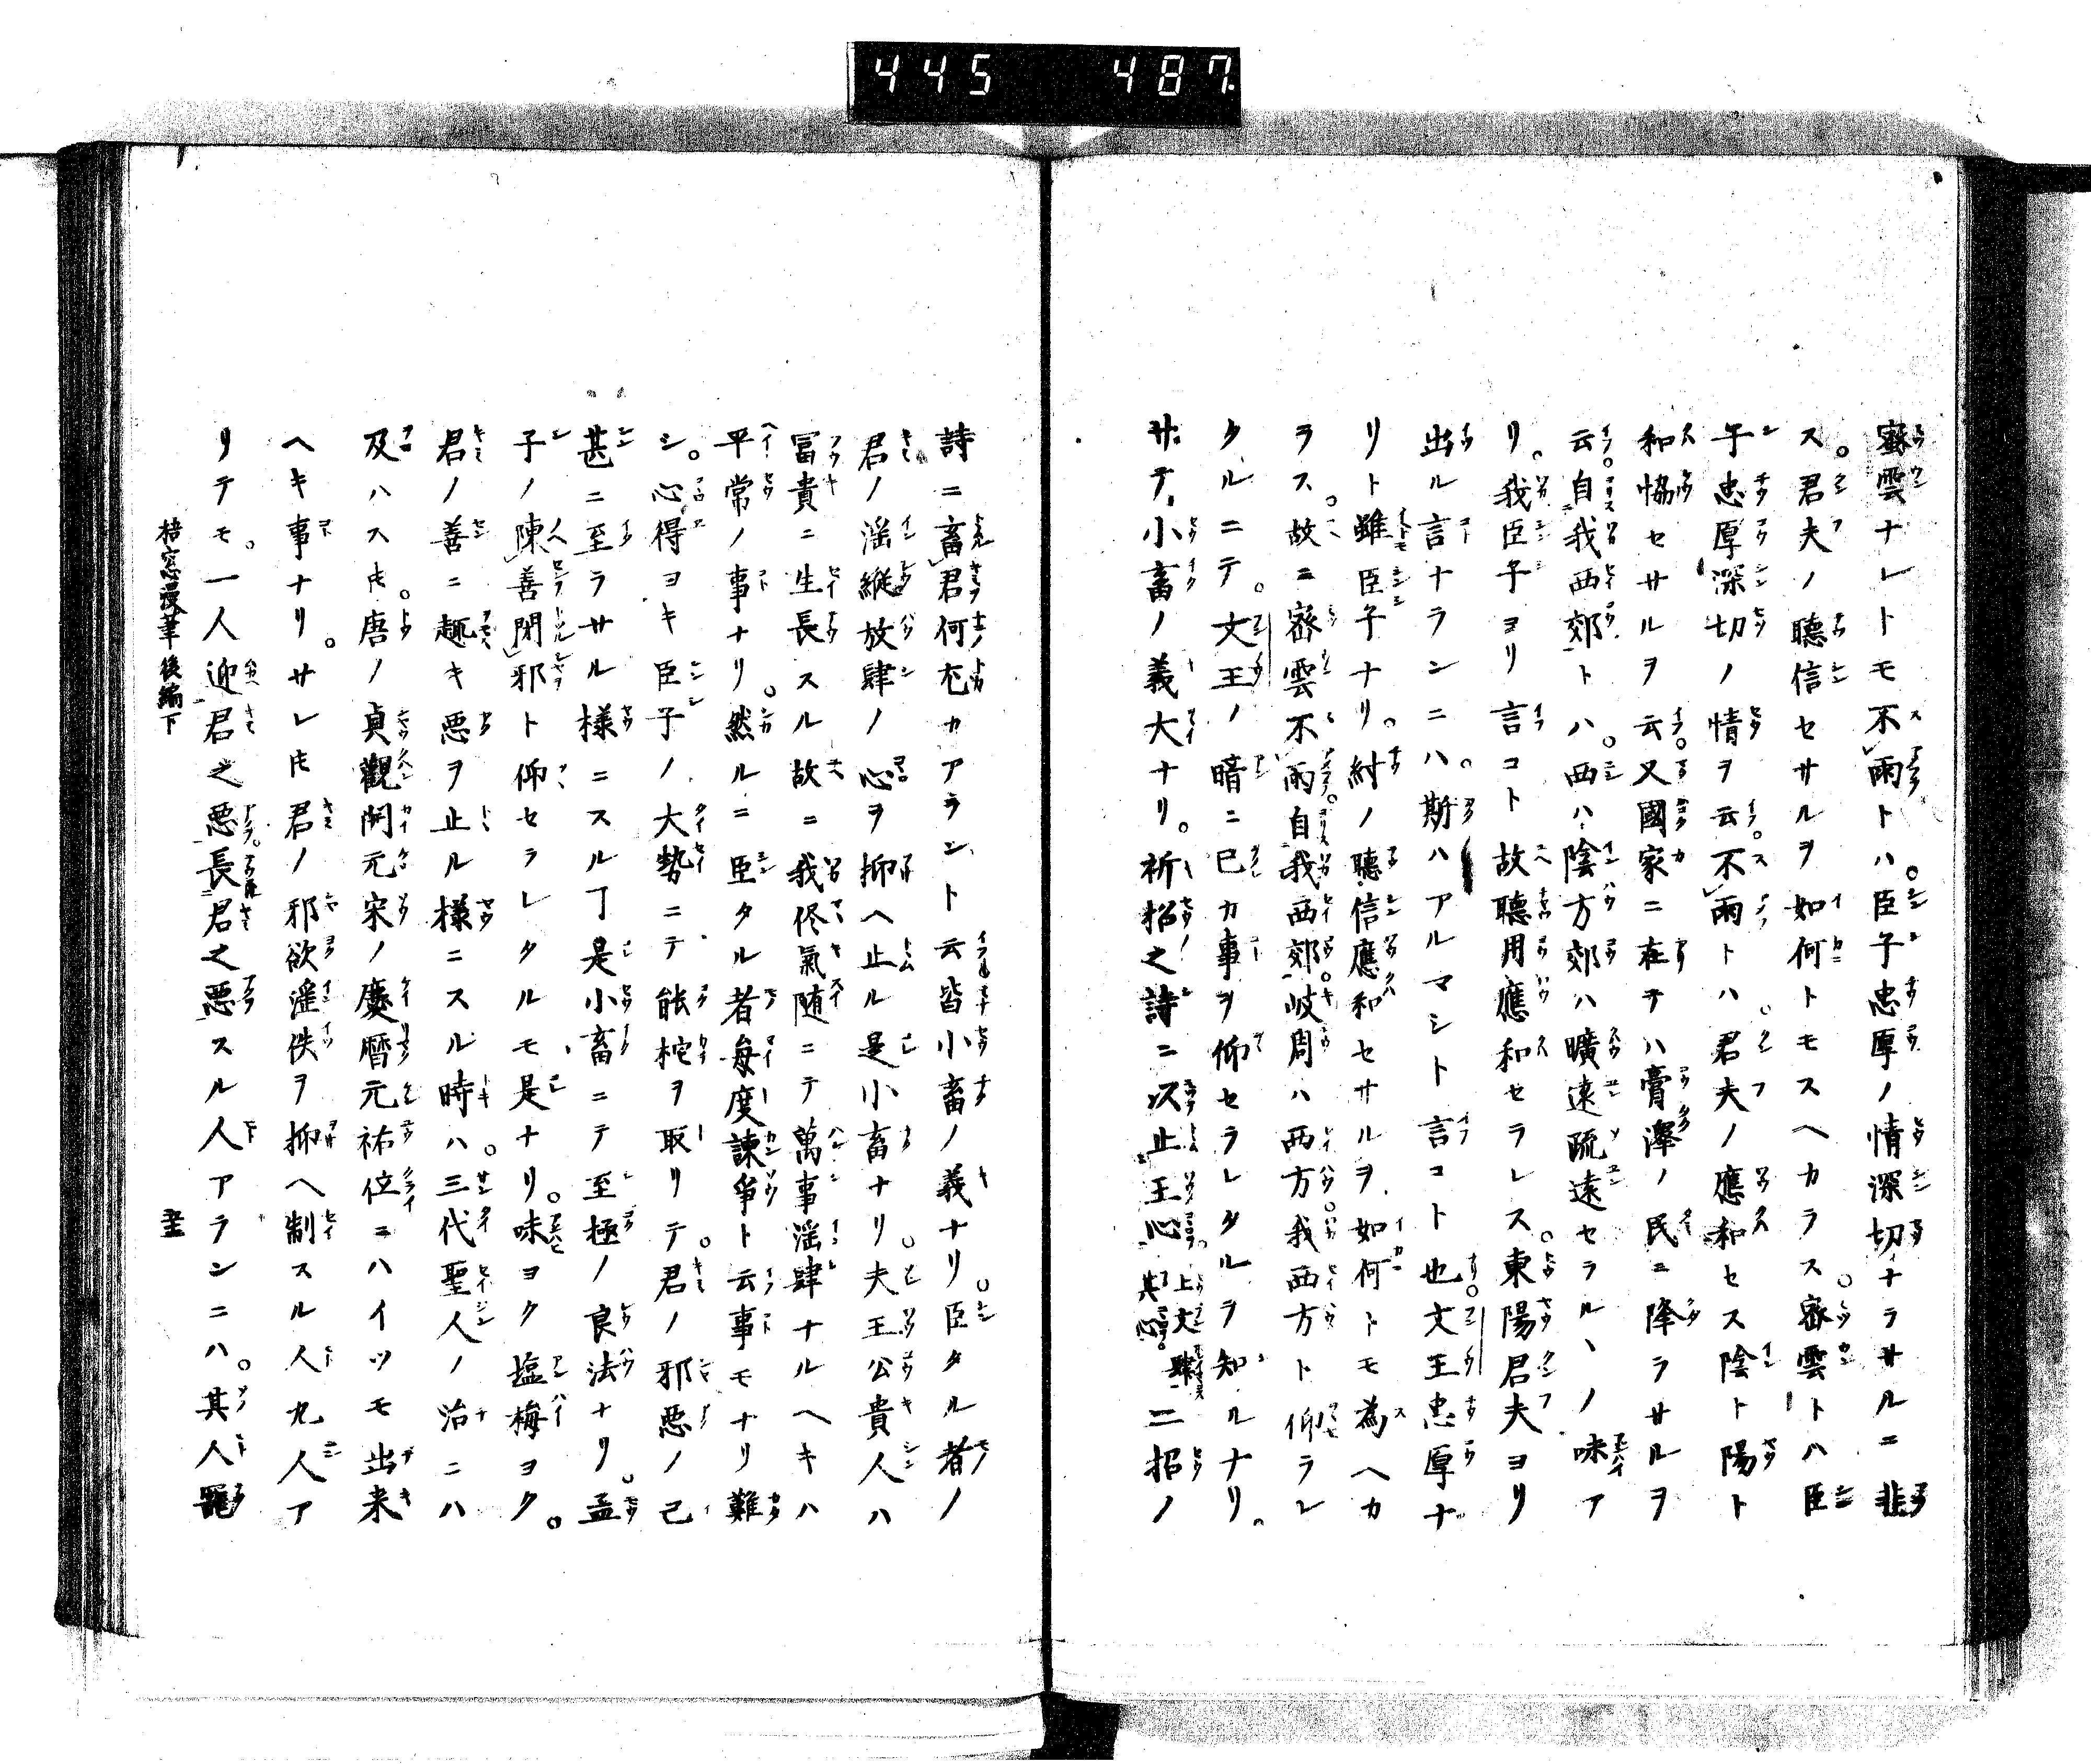 445 487
密雲ナレトモ不雨トハ。臣子忠厚ノ情深切ナラサルニ非
ス。君夫ノ聽信セサルヲ如何トモスヘカラス。密雲トハ臣
子忠厚深切ノ情ヲ云。不雨トハ君夫ノ應和セス陰ト陽ト
和恊セサルヲ云。又國家ニ在テハ膏澤ノ民ニ降ラサルヲ
云。自我西郊トハ。西ハ陰方郊ハ曠遠疏遠セラルヽノ味ア
リ。我臣子ヨリ言コト故聽用應和セラレス。東陽君夫ヨリ
出ル言ナランニハ。斯ハアルマシト言コト也。文王忠厚ナ
リト雖臣子ナリ。紂ノ聽信應和セサルヲ如何トモ為ヘカ
ラス。故ニ密雲不雨。自我西郊。岐周ハ西方。我西方ト仰ラレ
タルニテ。文王ノ暗ニ已カ事ヲ仰セラレタルヲ知ルナリ。
サテ小畜ノ義大ナリ。祈招之詩ニ以止王心。上文肆其心。二招ノ
詩ニ畜君何尤カアラント云皆小畜ノ義ナリ。臣タル者ノ
君ノ滛縱放肆ノ心ヲ抑ヘ止ル是小畜ナリ。夫王公貴人ハ
冨貴ニ生長スル故ニ我侭氣随ニテ萬事滛肆ナルヘキハ
平常ノ事ナリ。然ルニ臣タル者毎度諫爭ト云事モナリ難
シ。心得ヨキ臣子ノ大勢ニテ能柁ヲ取リテ。君ノ邪惡ノ已
甚ニ至ラサル様ニスルヿ是小畜ニテ至極ノ良法ナリ。孟
子ノ陳善閉邪ト仰セラレタルモ是ナリ。味ヨク塩梅ヨク。
君ノ善ニ趣キ惡ヲ止ル様ニスル時ハ。三代聖人ノ治ニハ
及ハスㇳモ。唐ノ貞觀開元宋ノ慶暦元祐位ニハイツモ出来
ヘキ事ナリ。サレㇳモ君ノ邪欲滛佚ヲ抑ヘ制スル人九人ア
リテモ。一人迎君之惡。長君之惡スル人アランニハ。其人寵
梧窓漫筆後編下